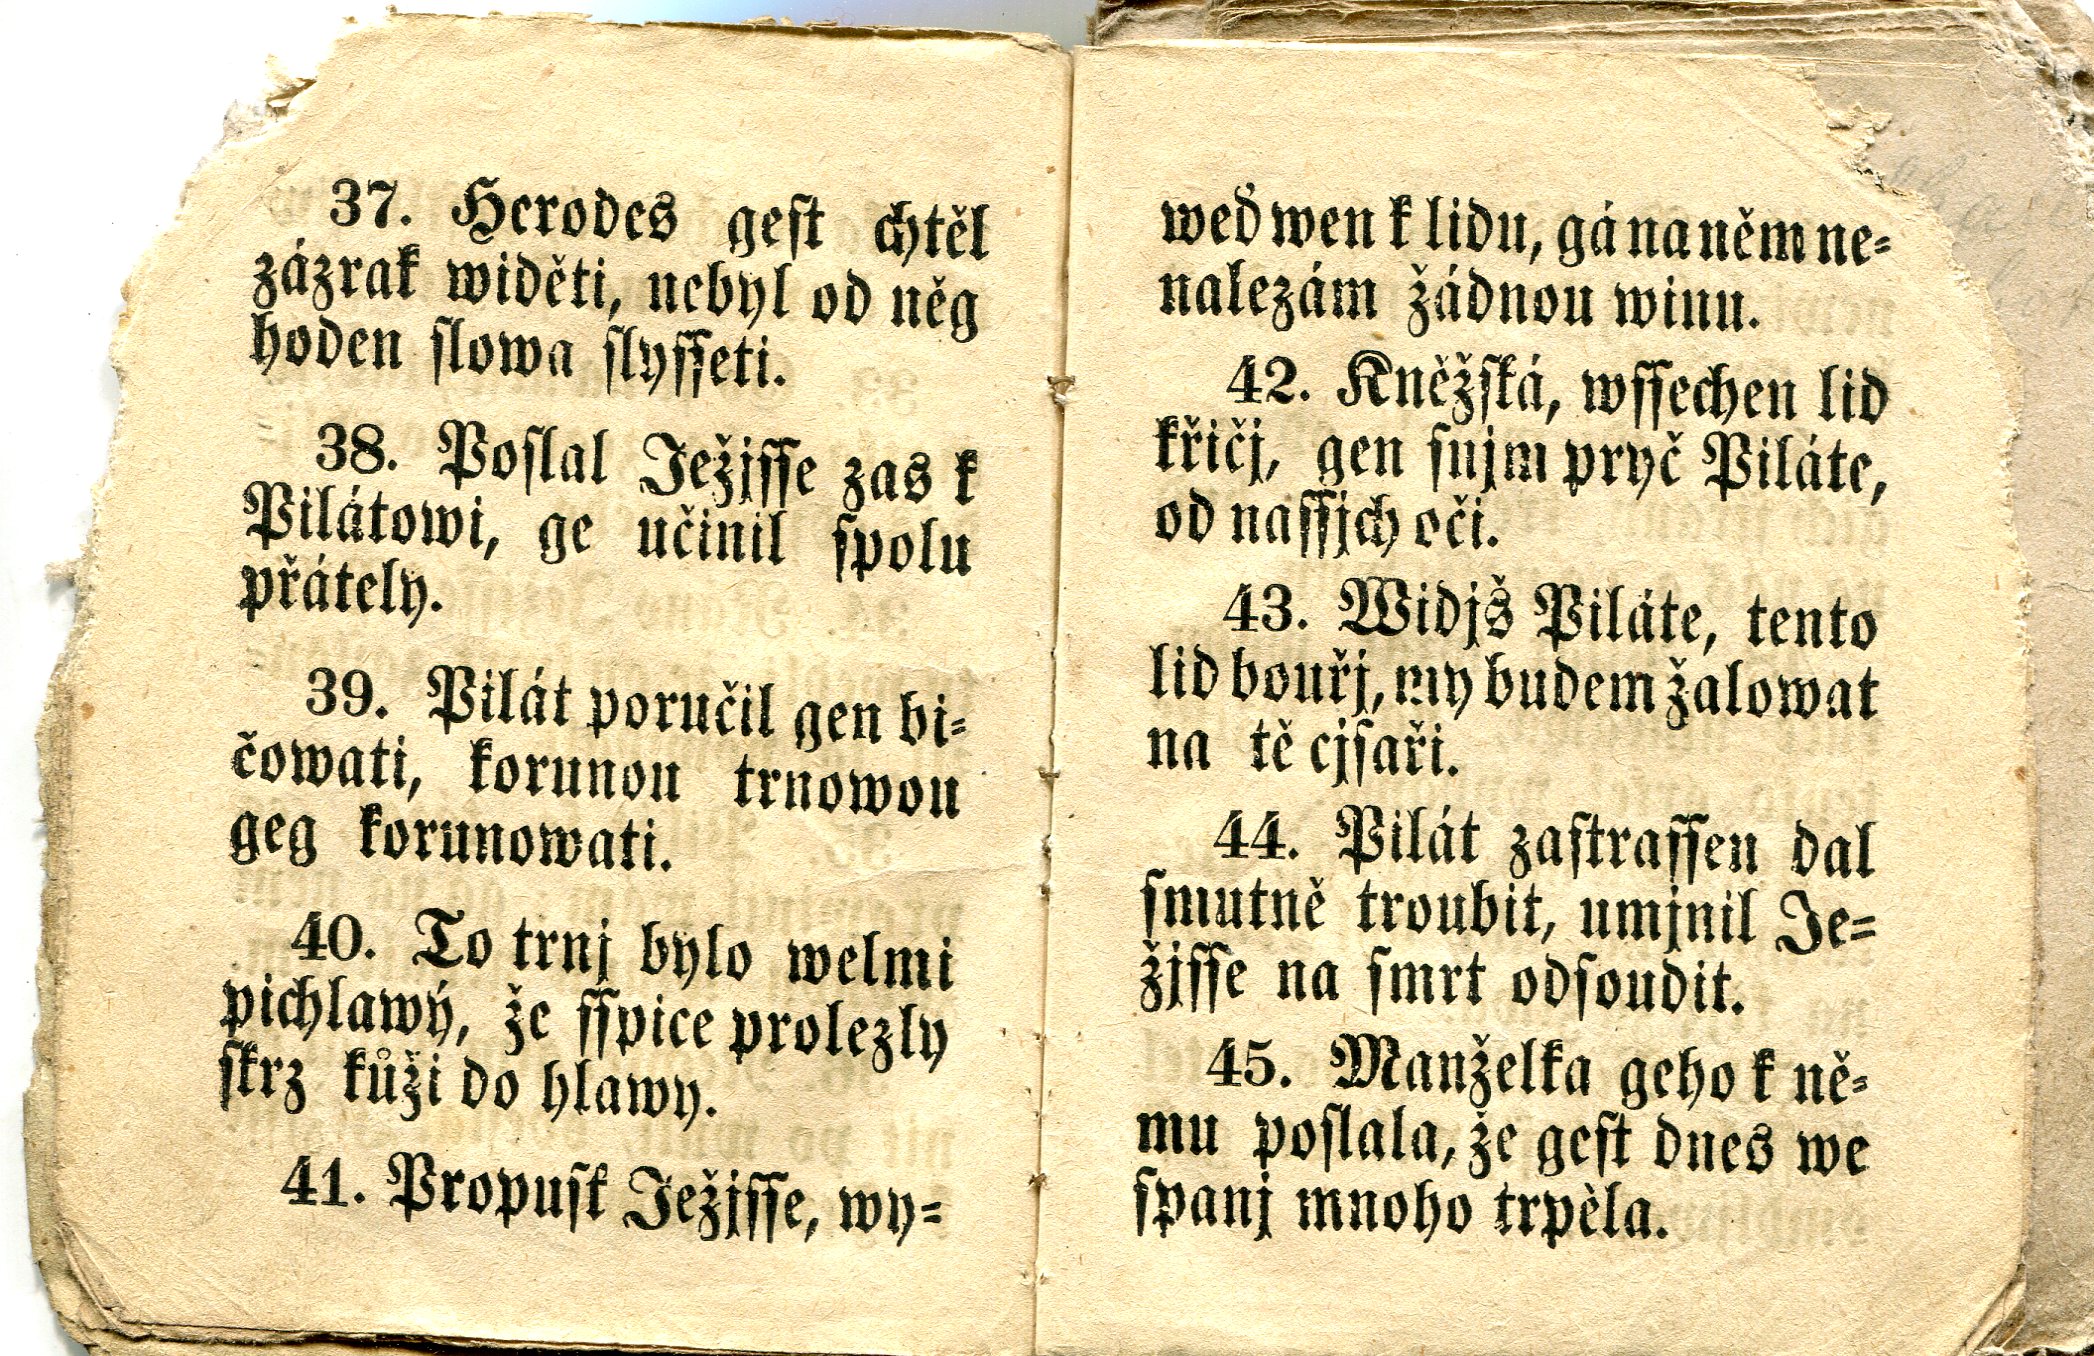 37. Herodes geſt chtěl
zázrak widěti, nebyl od něg
hoden ſlowa ſlyſſeti.
38. Poſlal Ježjſſe zas k
Pilátowi, ge učinil ſpolu
přátely.
39. Pilát poručil gen bi⸗
čowati, korunou trnowou
geg korunowati.
40. To trnj bylo welmi
pichlawý, že ſſpice prolezly
ſkrz kůži do hlawy.
41. Propuſk Ježjſſe, wy⸗
weď wen k lidu, gá na něm ne⸗
nalezám žádnou winu.
42. Kněžſká, wſſechen lid
křičj, gen ſnjm pryč Piláte,
od naſſjch oči.
43. Widjš Piláte, tento
lid bouřj, my budem žalowat
na tě cjſaři.
44. Pilát zaſtraſſen dal
ſmutně troubit, umjnil Je⸗
žjſſe na ſmrt odſoudit.
45. Manželka geho k ně⸗
mu poſlala, že geſt dnes we
ſpanj mnoho trpěla.